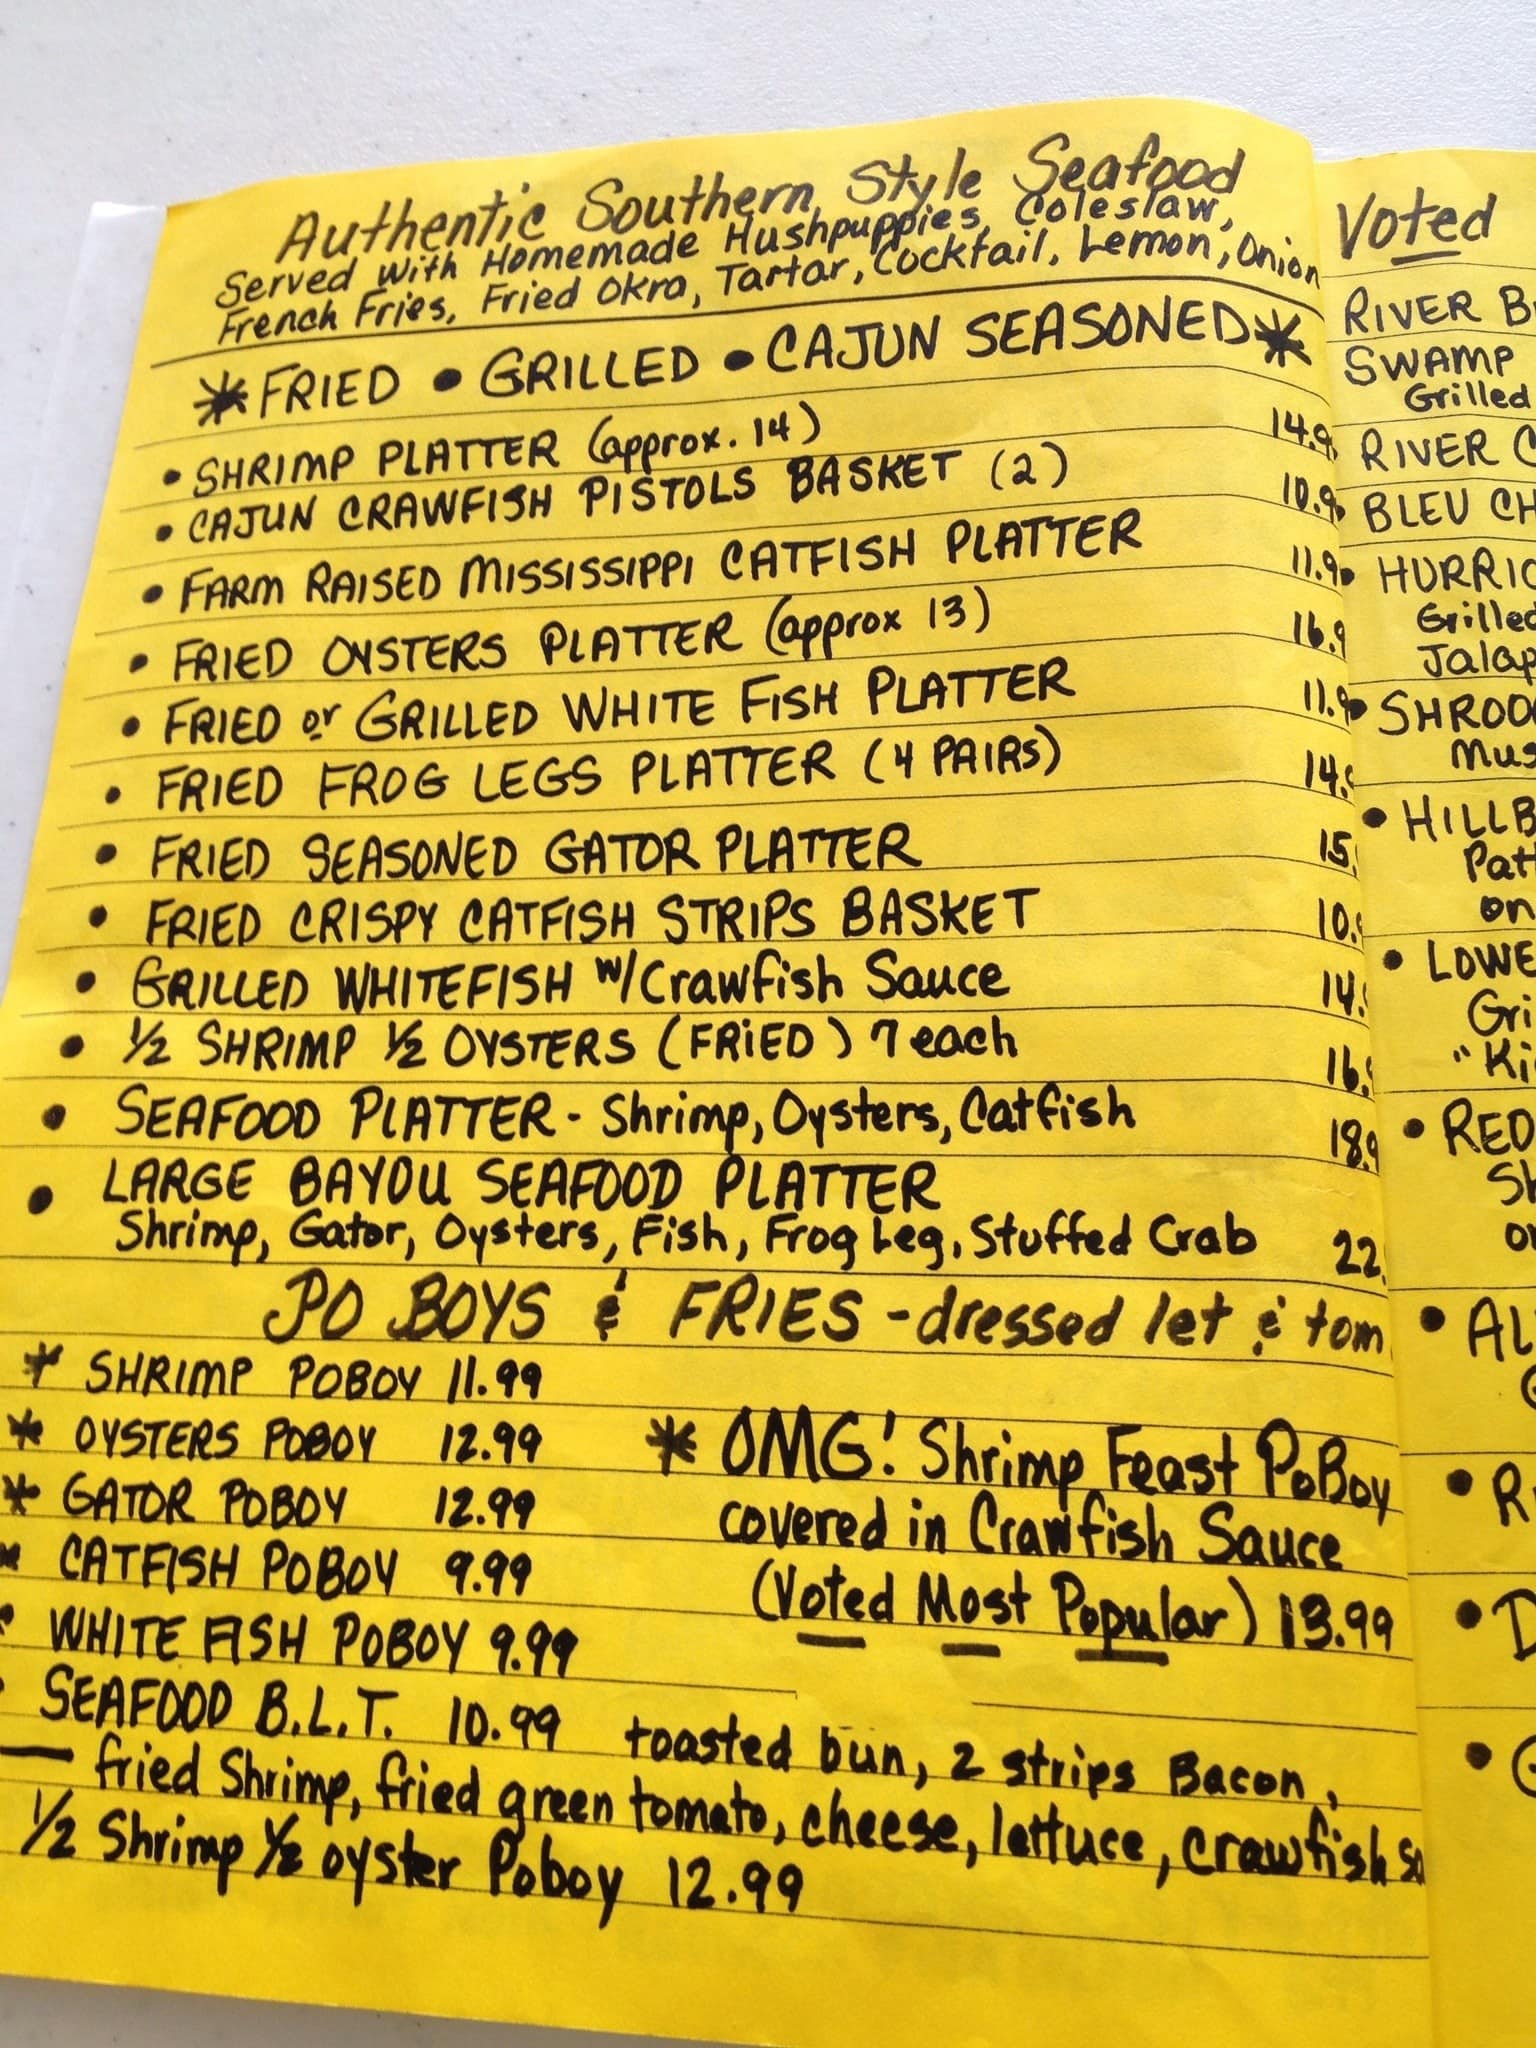 Authentic Southern Style Seafood
Served with Homemade Hushpuppies, Coleslaw,
French Fries, Fried Okra, Tartar, Cocktail, Lemon, Onion
* FRIED • GRILLED • CAJUN SEASONED *
• SHRIMP PLATTER (approx. 14) 14.9
• CAJUN CRAWFISH PISTOLS BASKET (2) 10.9
• FARM RAISED MISSISSIPPI CATFISH PLATTER 11.9
• FRIED OYSTERS PLATTER (approx 13) 16.9
• FRIED or GRILLED WHITE FISH PLATTER 11.9
• FRIED FROG LEGS PLATTER (4 PAIRS) 14.9
• FRIED SEASONED GATOR PLATTER 15.
• FRIED CRISPY CATFISH STRIPS BASKET 10.9
• GRILLED WHITEFISH w/Crawfish Sauce 14.9
• 1/2 SHRIMP 1/2 OYSTERS (FRIED) 7 each 16.9
• SEAFOOD PLATTER - Shrimp, Oysters, Catfish 18.9
• LARGE BAYOU SEAFOOD PLATTER
Shrimp, Gator, Oysters, Fish, Frog Leg, Stuffed Crab 22.
PO BOYS & FRIES - dressed let & tom
* SHRIMP POBOY 11.99
* OYSTERS POBOY 12.99
* GATOR POBOY 12.99
* CATFISH POBOY 9.99
WHITE FISH POBOY 9.99
* OMG! Shrimp Feast PoBoy
covered in Crawfish Sauce
(Voted Most Popular) 13.99
SEAFOOD B.L.T. 10.99 toasted bun, 2 strips Bacon,
— fried Shrimp, fried green tomato, cheese, lettuce, crawfish sa
1/2 Shrimp 1/2 oyster Poboy 12.99
Voted
RIVER B
SWAMP
Grilled
RIVER C
• BLEU CH
• HURRIC
Grilled
Jalap
• SHROO
Mus
• HILLB
Patt
on
• LOWE
Gri
"Ki
• RED
Sh
on
• AL
• R
• D
• G